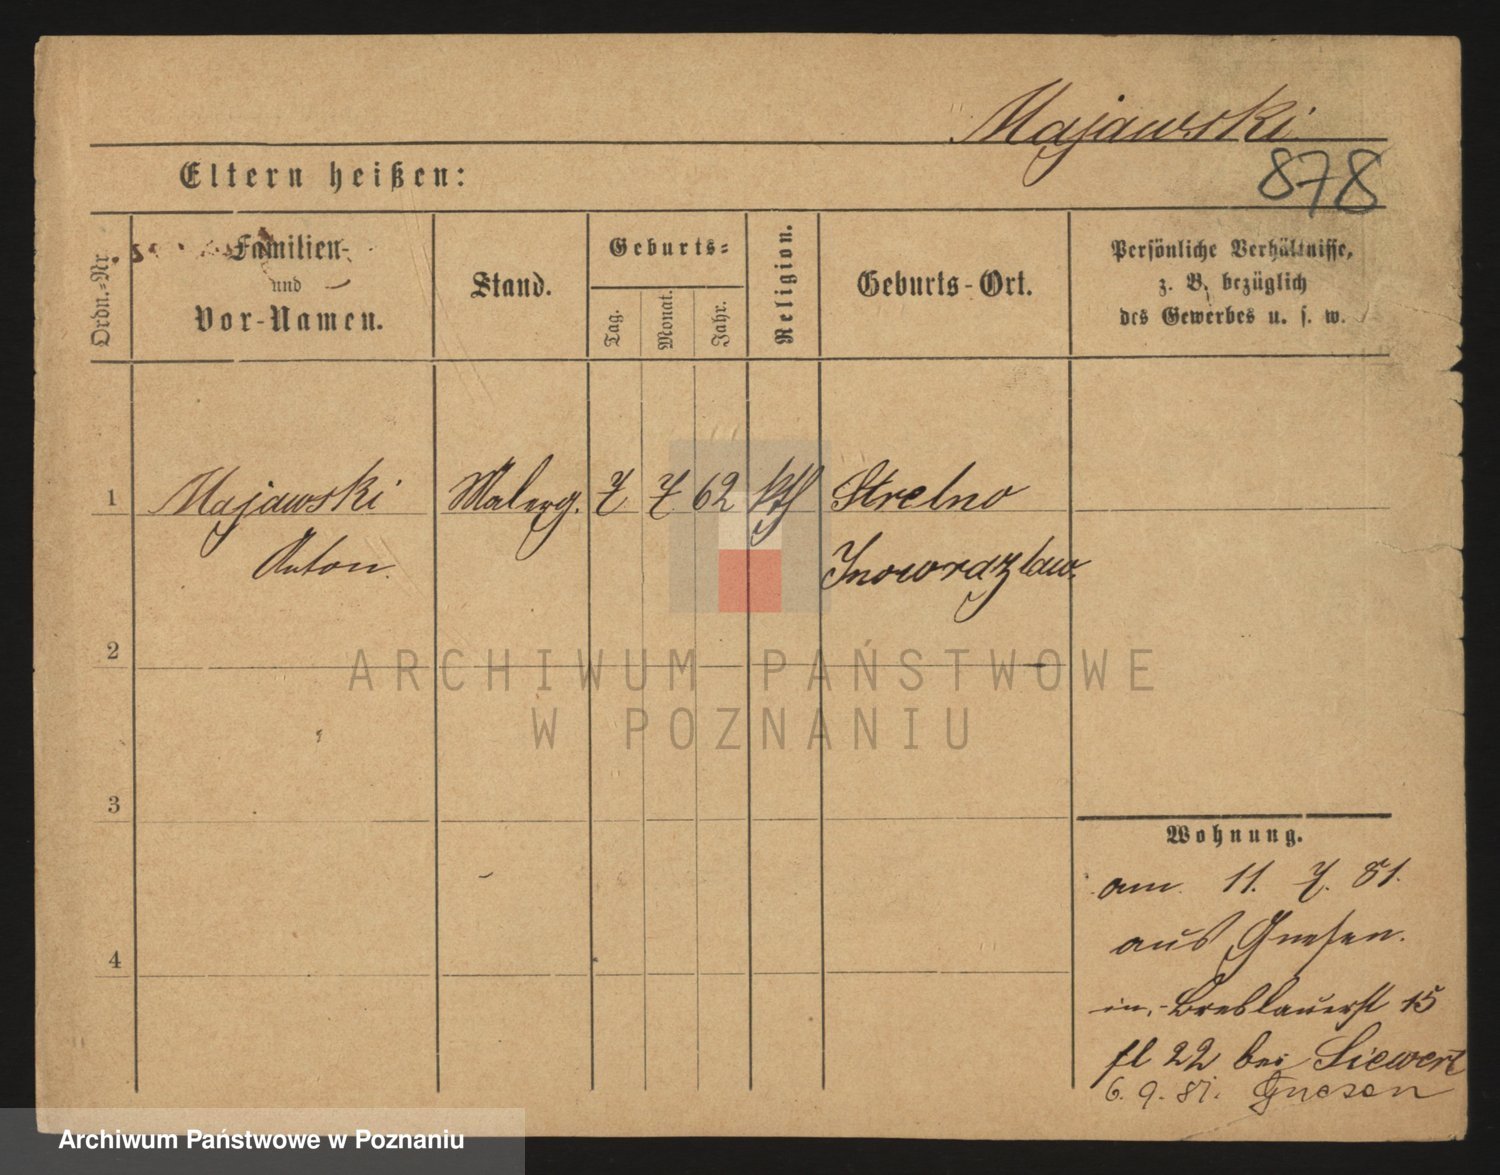 Majawski
878
Eltern heißen:
Ordn.-Nr.
Familien-
und
Vor-Namen.
Stand.
Geburts-
Tag.
Monat.
Jahr.
Religion.
Geburts-Ort.
Persönliche Verhältnisse,
z. B. bezüglich
des Gewerbes u. s. w.
1 Majawski Malerg. 7 7. 62 kth Strelno
Anton. Inowrazlaw.
2
ARCHIWUM PAŃSTWOWE
W POZNANIU
3
Wohnung.
am. 11. 7. 81.
aus Gnesen.
4
in. Breslauerst 15
fl 22 bei Siewert
6. 9. 81. Gnesen
Archiwum Państwowe w Poznaniu